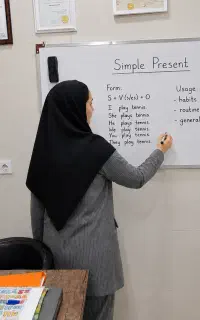 Simple Present
Form:
S + V(s/es) + O
I play tennis.
She plays tennis.
He plays tennis.
We play tennis.
You play tennis.
They play tennis.
Usage
- habits
- routine
- general